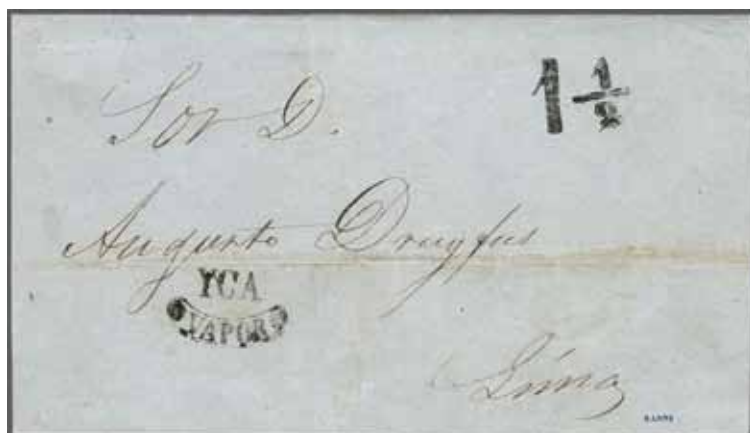 Sor D.
1 1/2
Augusto Dreyfus
YCA
VAPOR
Lima